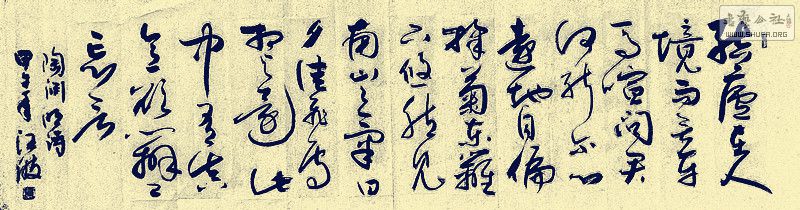 結廬在人
境而无车
马喧问君
何能尔心
遠地自偏
採菊东籬
下悠然见
南山々氣日
夕佳飛鸟
相与还此
中有真
意欲辨已
忘言
陶渊明诗
甲午年 汪
公社
WWW.SHUFA.ORG